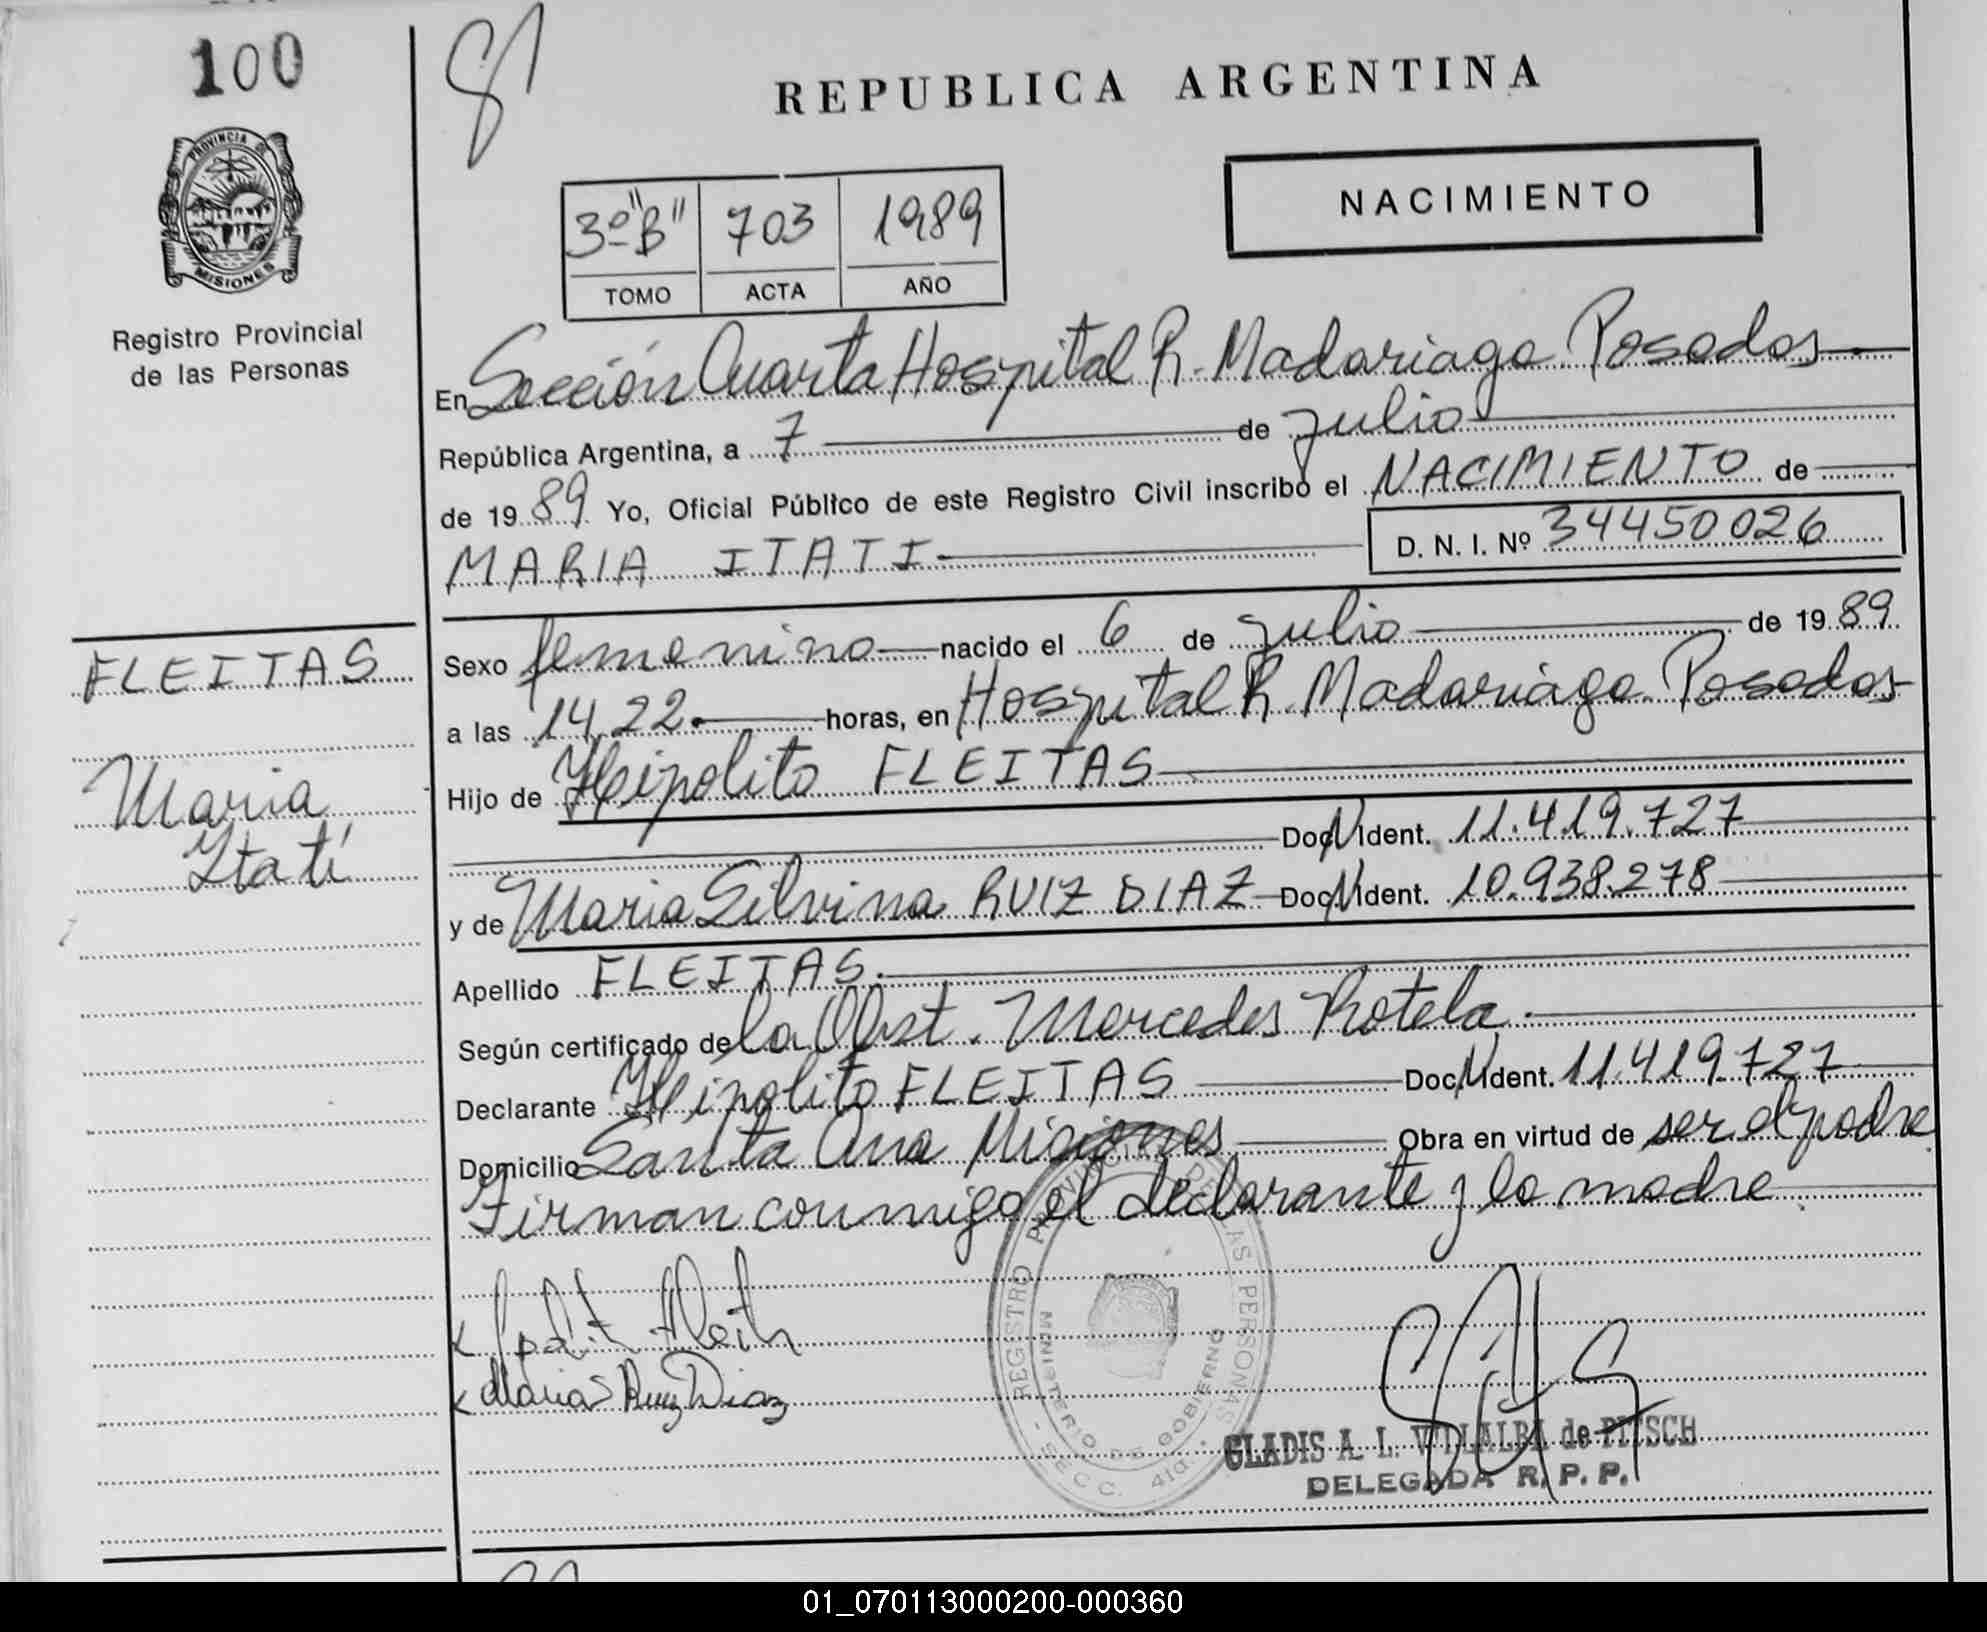 100
81
REPUBLICA ARGENTINA
PROVINCIA DE
MISIONES
Registro Provincial
de las Personas
3º "B" 703 1989
TOMO ACTA AÑO
NACIMIENTO
En Sección Cuarta Hospital R. Madariaga Posadas
República Argentina, a 7 de julio
de 1989 Yo, Oficial Público de este Registro Civil inscribo el NACIMIENTO de
MARIA ITATI D. N. I. Nº 34450026
Sexo femenino nacido el 6 de julio de 1989
FLEITAS
a las 14,22 horas, en Hospital R. Madariaga Posadas
Maria
Itatí
Hijo de Hipolito FLEITAS
Doc. Ident. 11.419.727
y de Maria Silvina RUIZ DIAZ Doc. Ident. 10.938.278
Apellido FLEITAS.
Según certificado de la Obst. Mercedes Rotela.
Declarante Hipolito FLEITAS Doc. Ident. 11.419.727
Domicilio Santa Ana Misiones Obra en virtud de ser el padre
Firman conmigo el declarante y la madre.
REGISTRO PROVINCIAL DE LAS PERSONAS
MINISTERIO DE GOBIERNO
- SECC. 4ta. -
Maria S Ruiz Diaz
GLADIS A. L. VILLALBA de PITSCH
DELEGADA R. P. P.
01_070113000200-000360